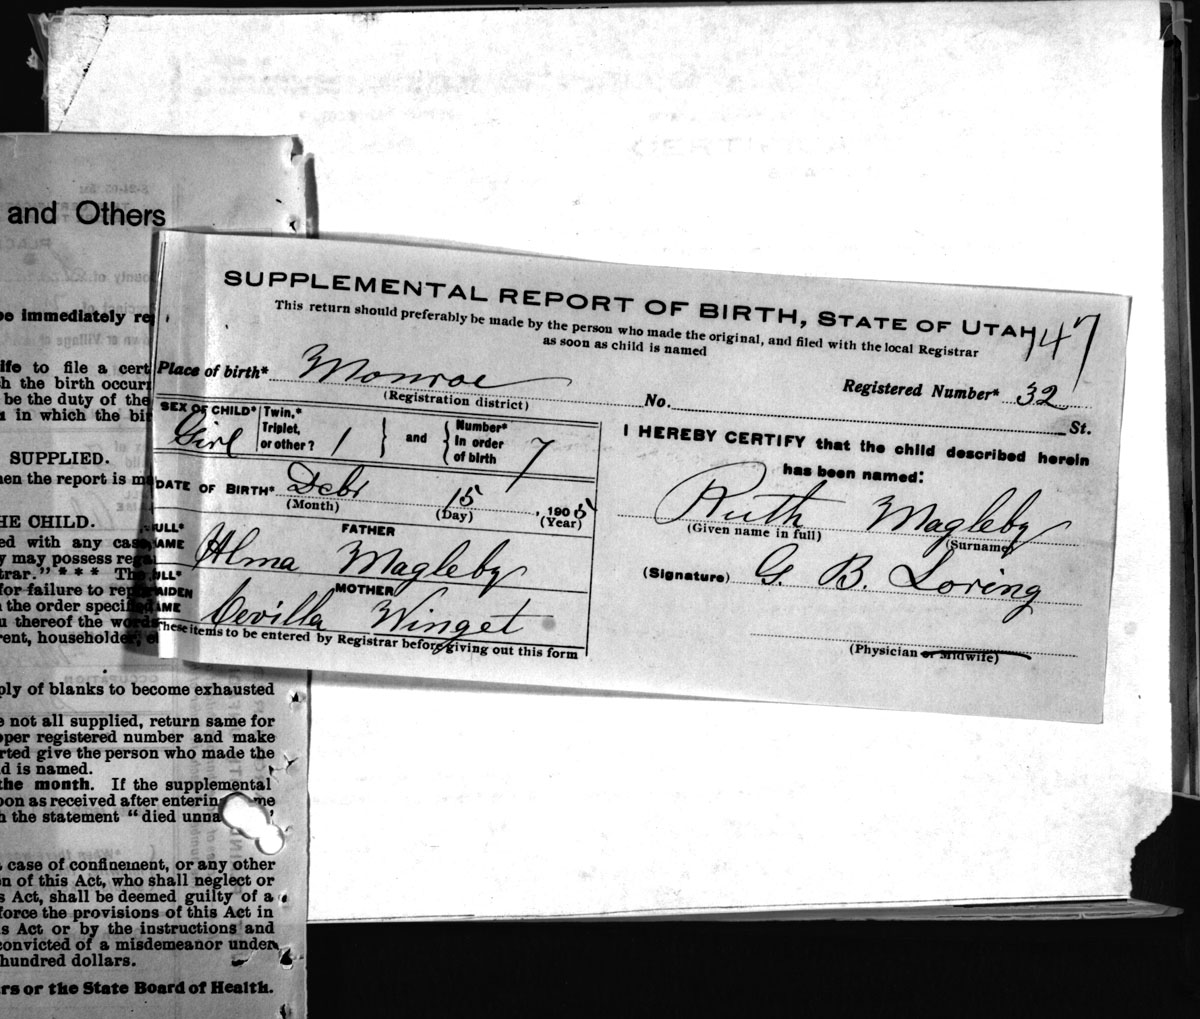 and Others
be immediately re
ife to file a cert
h the birth occur
be the duty of the
in which the bir
SUPPLIED.
hen the report is m
HE CHILD.
ed with any case
y may possess rega
trar." * * * The
for failure to rep
the order specif
u thereof the words
rent, householder,
ply of blanks to become exhausted
e not all supplied, return same for
oper registered number and make
rted give the person who made the
d is named.
the month. If the supplemental
oon as received after enterin me
h the statement "died unna "
case of confinement, or any other
on of this Act, who shall neglect or
s Act, shall be deemed guilty of a
force the provisions of this Act in
is Act or by the instructions and
convicted of a misdemeanor under
hundred dollars.
rs or the State Board of Health.
SUPPLEMENTAL REPORT OF BIRTH, STATE OF UTAH
147
This return should preferably be made by the person who made the original, and filed with the local Registrar
as soon as child is named
Place of birth* Monroe
(Registration district)
Registered Number* 32
No. St.
SEX OF CHILD* Girl
Twin,* Triplet, or other? 1
and
Number* in order of birth 7
DATE OF BIRTH* Debr 15, 1905
(Month) (Day) (Year)
FULL* NAME FATHER
Alma Magleby
FULL* MAIDEN NAME MOTHER
Cevilla Winget
These items to be entered by Registrar before giving out this form
I HEREBY CERTIFY that the child described herein
has been named:
Ruth Magleby
(Given name in full) (Surname)
(Signature) G. B. Loring
(Physician or Midwife)